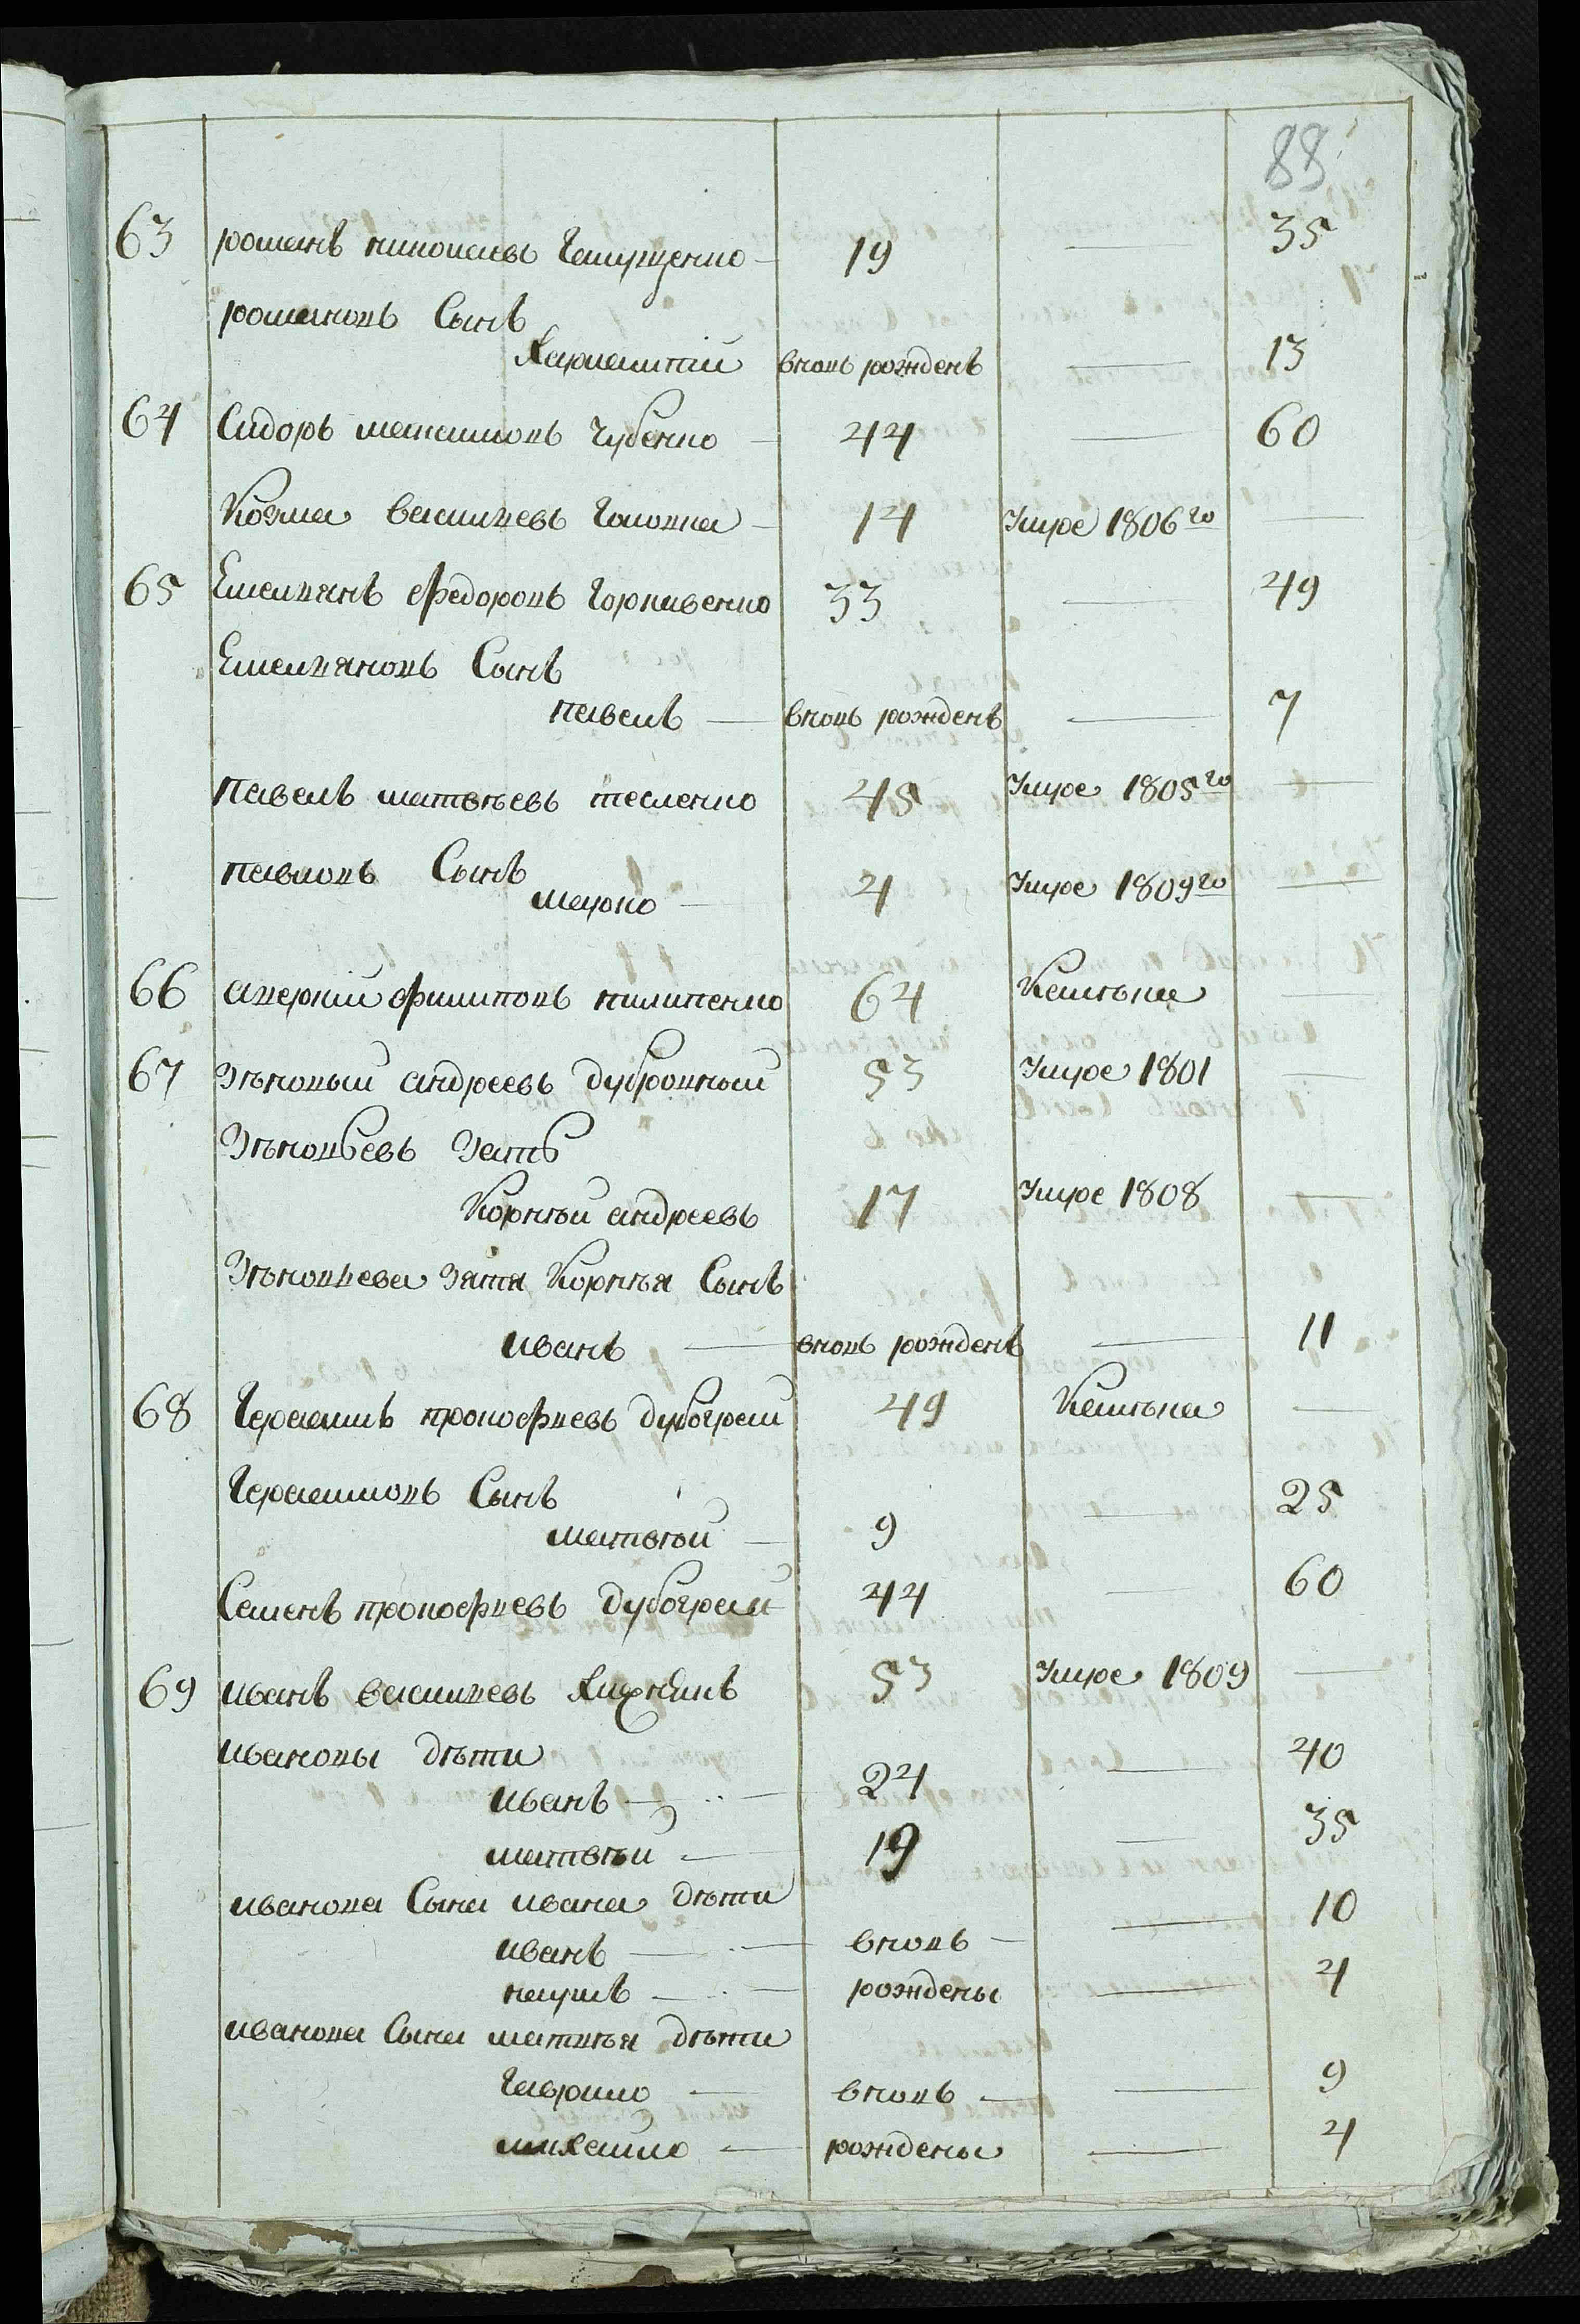 88
63 романъ николаевъ Галущенко 19 — 35
романовъ Сынъ
Харлампий вновь рожденъ — 13
64 Сидоръ максимовъ Чубенко 44 — 60
Козма васильевъ Головка 14 Умре 1806го —
65 Емельянъ федоровъ Горкавенко 33 — 49
Емельяновъ Сынъ
павелъ — вновь рожденъ — 7
павелъ матвѣевъ тесленко 45 Умре 1805го —
павловъ Сынъ
марко — 4 Умре 1809го —
66 аверкий филиповъ пилипенко 64 —
67 Зѣновый андреевъ дубровный 53 Умре 1801 —
Зѣновьевъ Зять
Корнѣй андреевъ 17 Умре 1808 —
Зѣновьева Зятя Корнѣя Сынъ
иванъ — вновь рожденъ — 11
68 Герасимъ прокофьевъ дубограй 49 —
Герасимовъ Сынъ
матвѣй — 9 — 25
Семенъ прокофьевъ дубограй 44 — 60
69 иванъ васильевъ 53 Умре 1809 —
ивановы дѣти
иванъ — 24 — 40
матвѣй — 19 — 35
иванова Сына ивана дѣти
иванъ — вновь — 10
наумъ — рождены — 4
иванова Сына матвѣя дѣти
Гаврило — вновь — 9
михайло — рождены — 4